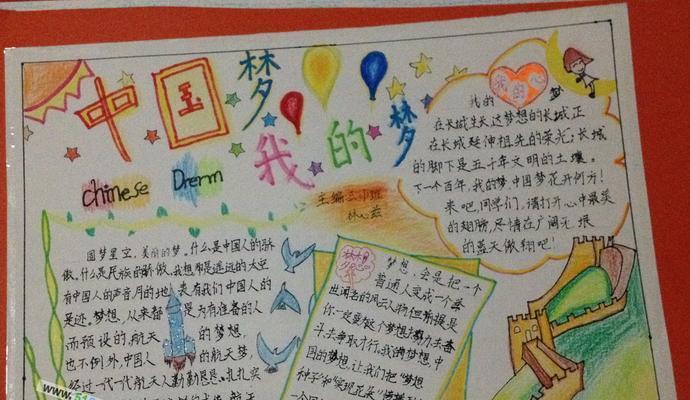 中国梦
我的梦
chinese Drerm
主编 三小班
林心兹
我的心
我的梦
在长城生长这梦想的长城正
在长城延伸祖先的荣光；长城
的脚下是五千年文明的土壤。
下一个百年，我的梦中国梦花开何方！
来吧，同学们，请打开心中最美
的翅膀，尽情在广阔无垠
的蓝天傲翔吧！
圆梦星空，美丽的梦。什么是中国人的骄
傲。什么是民族的骄傲。我想那是遥远的太空
有中国人的声音月的地表有我们中国人的
足迹。梦想，从来都是为有准备的人
而预设的，航天的梦想
也不例外，中国人的航天梦，
经过一代一代航天人勤勤恳恳、扎扎实
梦想
梦想，会是把一个
普通人变成一个举
世闻名的风云人物但前提是
你一定要被了梦想努力去奋
斗去争取才行。我的梦想，中
国的梦想，让我们把“梦想
种子”和“实现花朵”
www.51